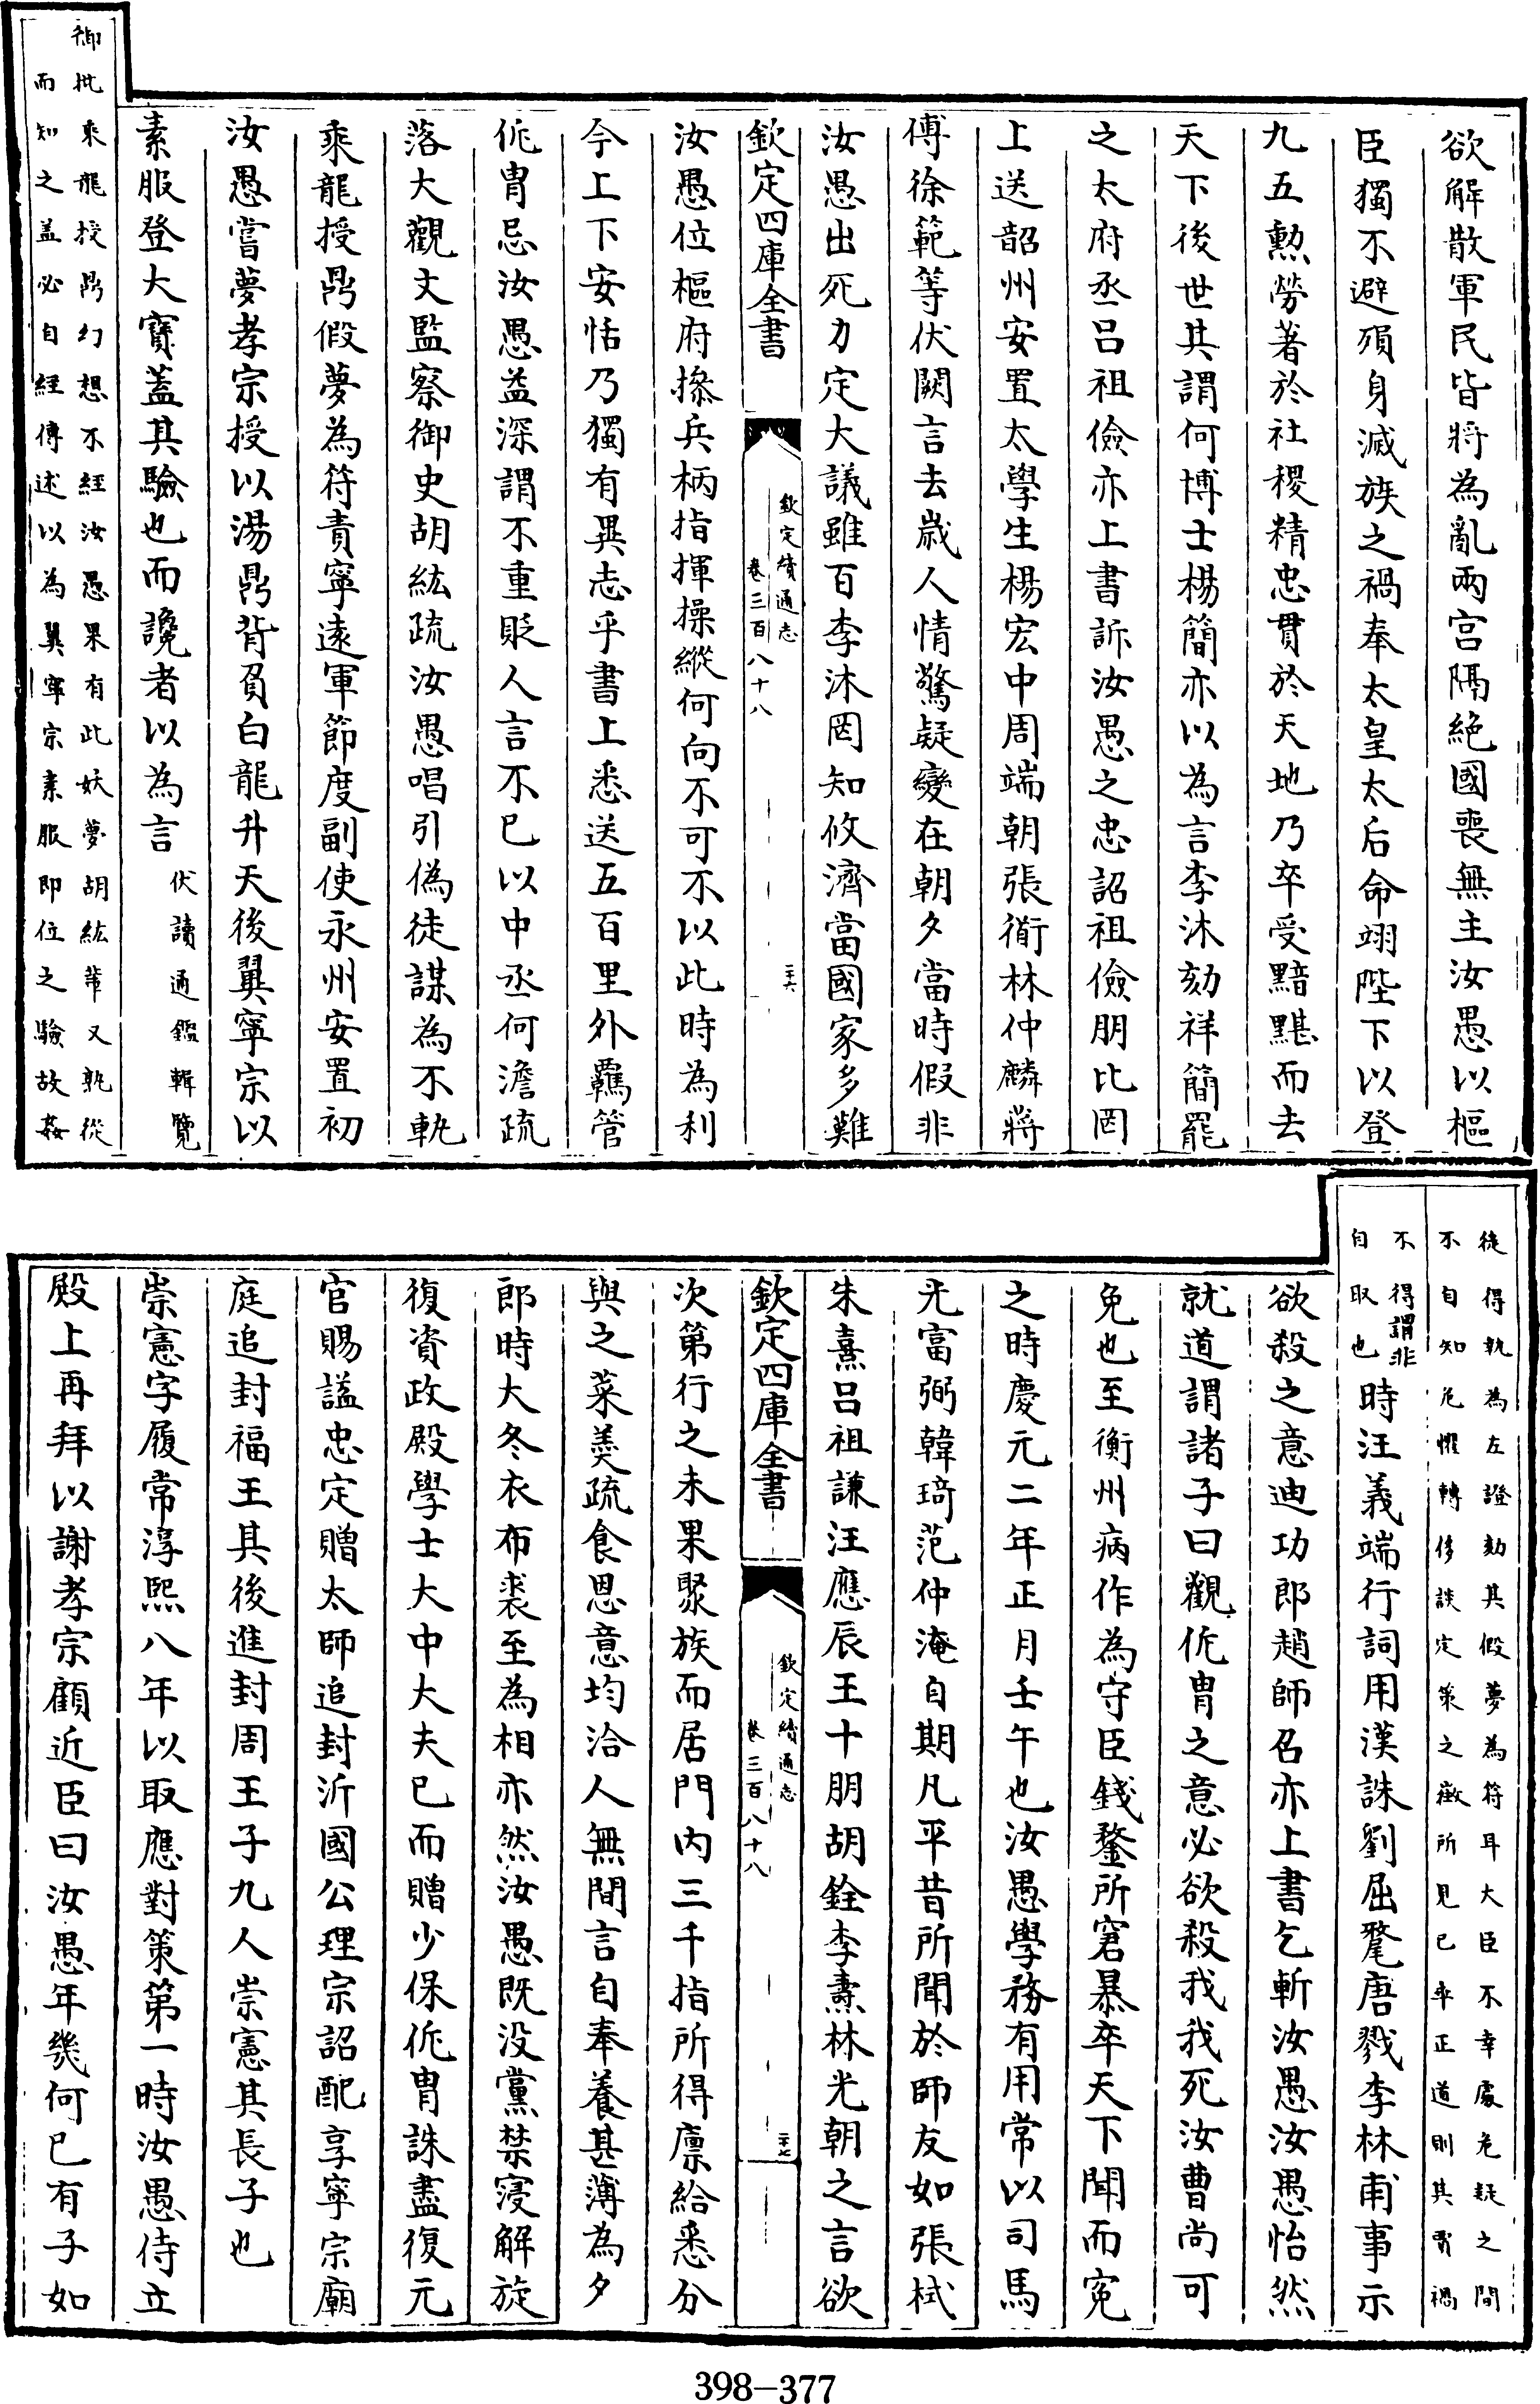 欲解散軍民皆將為亂兩宫隔絶國喪無主汝愚以樞
臣獨不避殞身滅族之禍奉太皇太后命翊陛下以登
九五勲勞著於社稷精忠貫於天地乃卒受黯黮而去
天下後世其謂何博士楊簡亦以為言李沐劾祥簡罷
之太府丞吕祖儉亦上書訴汝愚之忠詔祖儉朋比罔
上送韶州安置太學生楊宏中周端朝張衜林仲麟蔣
傅徐範等伏闕言去歲人情驚疑變在朝夕當時假非
汝愚出死力定大議雖百李沐罔知攸濟當國家多難
欽定四庫全書
欽定續通志
卷三百八十八
二十六
汝愚位樞府㩜兵柄指揮操縱何向不可不以此時為利
今上下安恬乃獨有異志乎書上悉送五百里外羈管
侂胄忌汝愚益深謂不重貶人言不已以中丞何澹疏
落大觀文監察御史胡紘疏汝愚唱引偽徒謀為不軌
乘龍授鼎假夢為符責寧遠軍節度副使永州安置初
汝愚嘗夢孝宗授以湯鼎背負白龍升天後翼寧宗以
素服登大寶蓋其驗也而讒者以為言
伏讀通鑑輯覽
御批乘龍授鼎幻想不經汝愚果有此妖夢胡紘輩又孰從
而知之盖必自經傳述以為翼寧宗素服即位之驗故姦
徒得執為左證劾其假夢為符耳大臣不幸處危疑之間
不自知危懼轉侈談定策之徵所見已乖正道則其賈禍
不得謂非
自取也
時汪義端行詞用漢誅劉屈氂唐戮李林甫事示
欲殺之意迪功郎趙師召亦上書乞斬汝愚汝愚怡然
就道謂諸子曰觀侂胄之意必欲殺我我死汝曹尚可
免也至衡州病作為守臣錢鍪所窘暴卒天下聞而寃
之時慶元二年正月壬午也汝愚學務有用常以司馬
光富弼韓琦范仲淹自期凡平昔所聞於師友如張栻
朱熹吕祖謙汪應辰王十朋胡銓李燾林光朝之言欲
欽定四庫全書
欽定續通志
卷三百八十八
二十七
次第行之未果聚族而居門内三千指所得廪給悉分
與之菜羮疏食恩意均洽人無間言自奉養甚薄為夕
郎時大冬衣布裘至為相亦然汝愚既没黨禁寖解旋
復資政殿學士大中大夫已而贈少保侂胄誅盡復元
官賜諡忠定贈太師追封沂國公理宗詔配享寧宗廟
庭追封福王其後進封周王子九人崇憲其長子也
崇憲字履常淳熙八年以取應對策第一時汝愚侍立
殿上再拜以謝孝宗顧近臣曰汝愚年幾何已有子如
398-377